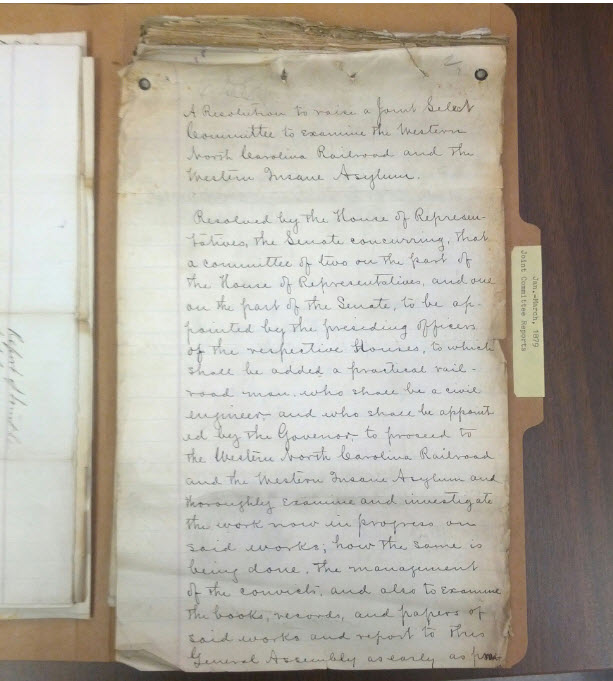 A Resolution to raise a Joint Select
Committee to examine the Western
North Carolina Railroad and the
Western Insane Asylum.
Resolved by the House of Represen-
tatives, the Senate concurring, that
a committee of two on the part of
the House of Representatives, and one
on the part of the Senate, to be ap-
pointed by the presiding officers
of the respective Houses, to which
shall be added a practical rail-
road man, who shall be a civil
engineer, and who shall be appoint
ed by the Govenor, to proceed to
the Western North Carolina Railroad
and the Western Insane Asylum and
thoroughly examine and investigate
the work now in progress on
said works; how the same is
being done, the management
of the convicts, and also to examine
the books, records, and papers of
said works and report to this
General Assembly as early as
Jan.-March, 1879
Joint Committee Reports